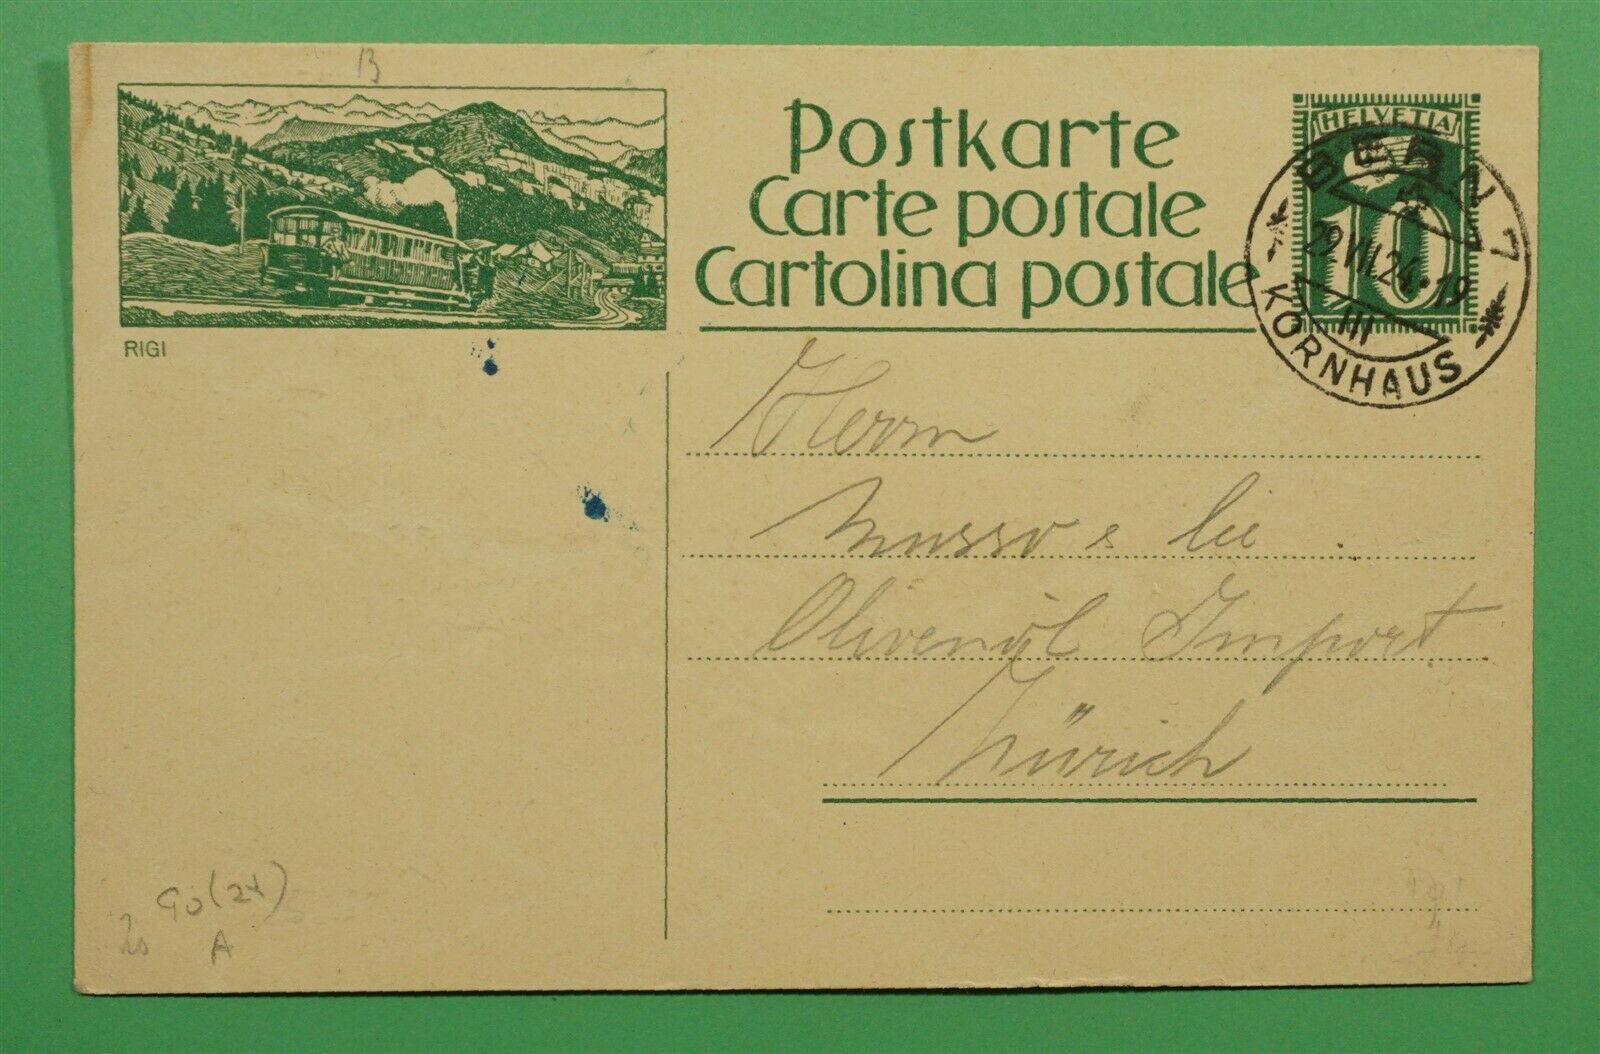 B
RIGI
Postkarte
Carte postale
Cartolina postale
HELVETIA
10
BERN 7
29.VII.24.19
III
KORNHAUS
Herrn
Musso & Cie
Olivenöl Import
Zürich
90 (24)
A